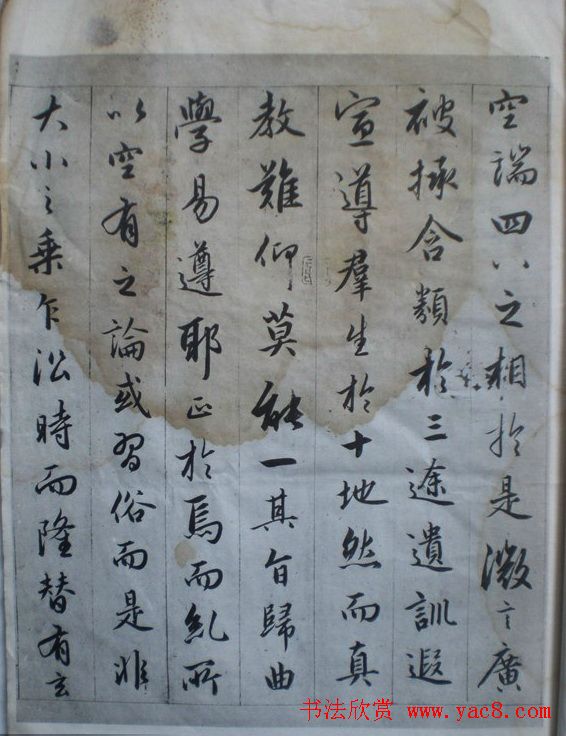 空端四八之相於是微言廣
被拯含類於三途遺訓遐
宣導羣生於十地然而真
教難仰莫能一其旨歸曲
學易遵耶正於焉而糺所
以空有之論或習俗而是非
大小之乘乍沿時而隆替有玄
书法欣赏 www.yac8.com